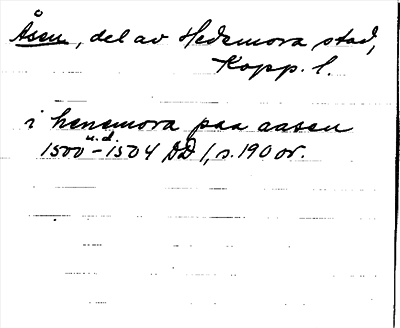 Åsen, del av Hedemora stad,
Kopp. l.
i henemora paa aasen
u.d.
1500 – 1504 DD 1, s. 190 or.